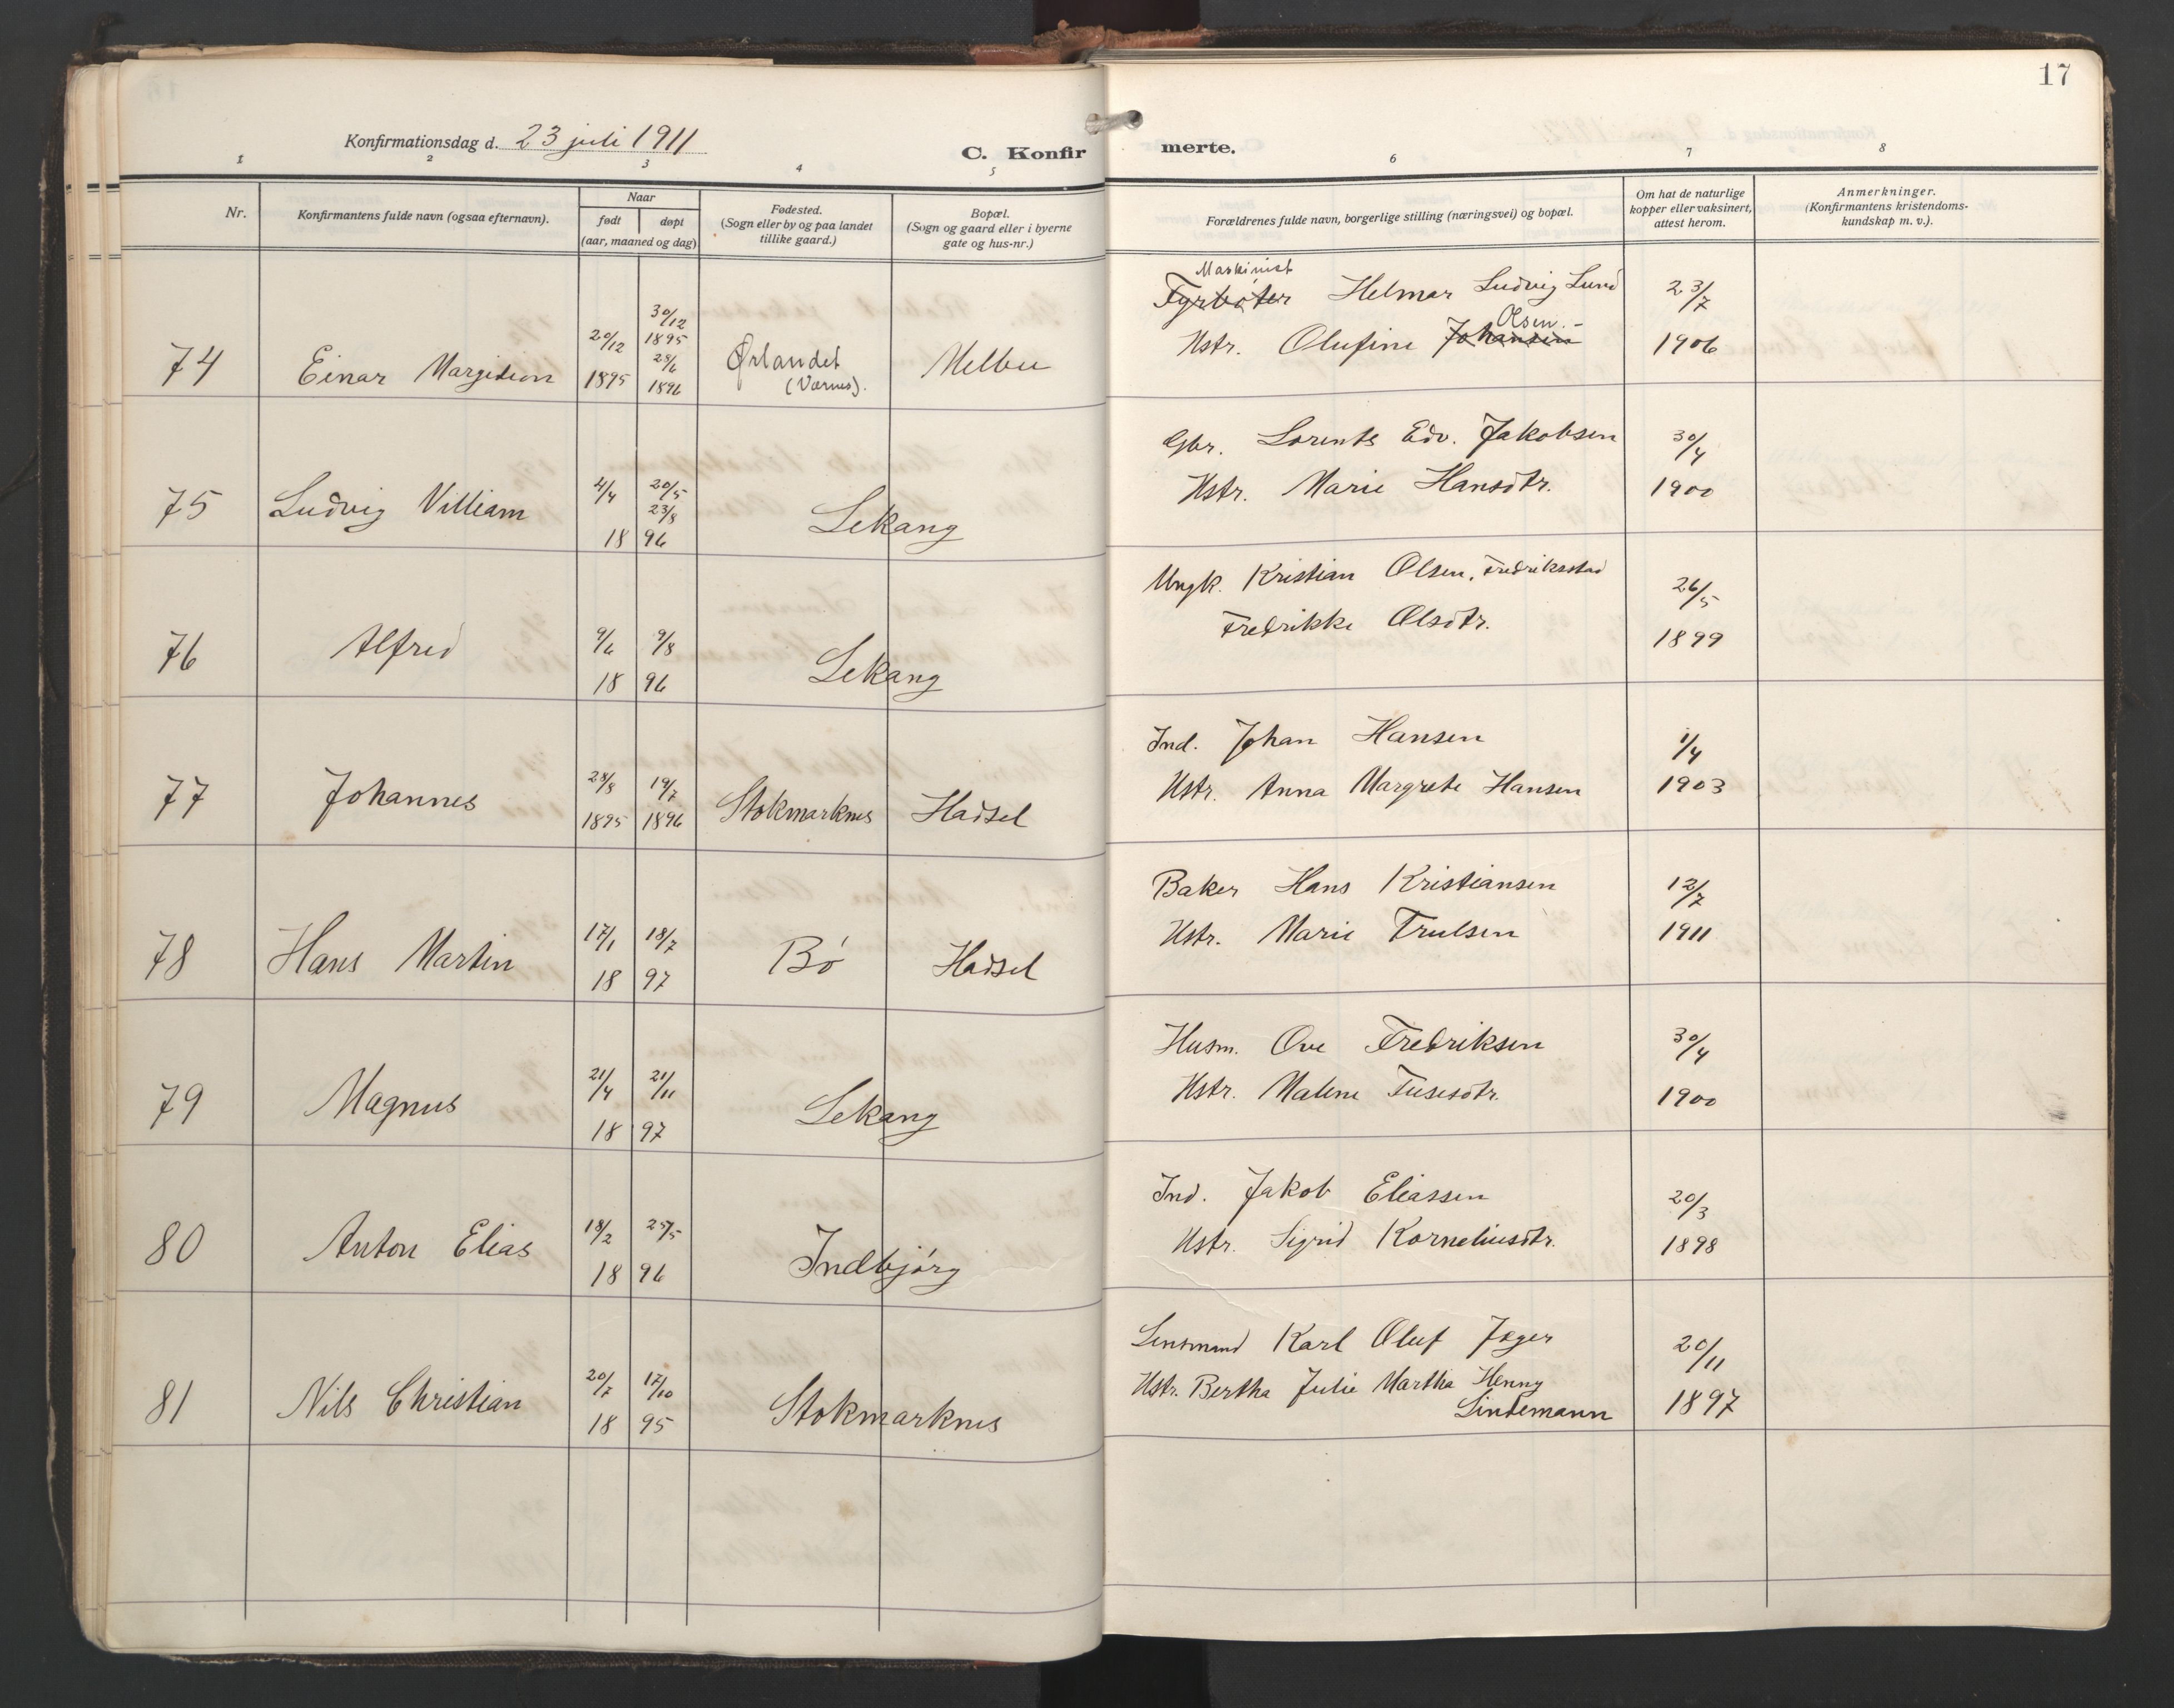 17
Konfirmationsdag d. 23 juli 1911
C. Konfirmerte.
1 2 3 4 5 6 7 8
Nr.
Konfirmantens fulde navn (ogsaa efternavn).
Naar
født døpt
(aar, maaned og dag)
Fødested.
(Sogn eller by og paa landet
tillike gaard.)
Bopæl.
(Sogn og gaard eller i byerne
gate og hus-nr.)
Forældrenes fulde navn, borgerlige stilling (næringsvei) og bopæl.
Om hat de naturlige
kopper eller vaksinert,
attest herom.
Anmerkninger.
(Konfirmantens kristendoms-
kundskap m. v.).
74 Einar Margideon
20/12 1895
30/12 1895
28/6 1896
Ørlandet
(Værnes).
Melbu
Maskinist
Fyrbøter Helmar Ludvig Lund
Olsen.-
Hstr. Olufine Johansen
23/7
1906
75 Ludvig Villiam
4/4 20/5
23/8
18 96
Lekang
Gbr. Lorents Edv. Jakobsen
Hstr. Marie Hansdtr.
30/4
1900
76 Alfred
9/6 9/8
18 96
Lekang
Ungk. Kristian Olsen, Fredriksstad
Fredrikke Olsdtr.
26/5
1899
77 Johannes
28/8 19/7
1895 1896
Stokmarknes Hadsel
Ind. Johan Hansen
Hstr. Anna Margrete Hansen
1/4
1903
78 Hans Martin
17/1 18/7
18 97
Bø Hadsel
Baker Hans Kristiansen
Hstr. Marie Trulsen
12/7
1911
79 Magnus
21/4 21/11
18 97
Lekang
Husm. Ove Fredriksen
Hstr. Malene Tusesdtr.
30/4
1900
80 Anton Elias
18/2 25/5
18 96
Indbjørg
Ind. Jakob Eliassen
Hstr. Sigrid Korneliusdtr.
20/3
1898
81 Nils Christian
20/7 17/10
18 95
Stokmarknes
Lensmand Karl Oluf Jæger
Hstr. Bertha Julie Martha Henny
Lindemann
20/11
1897